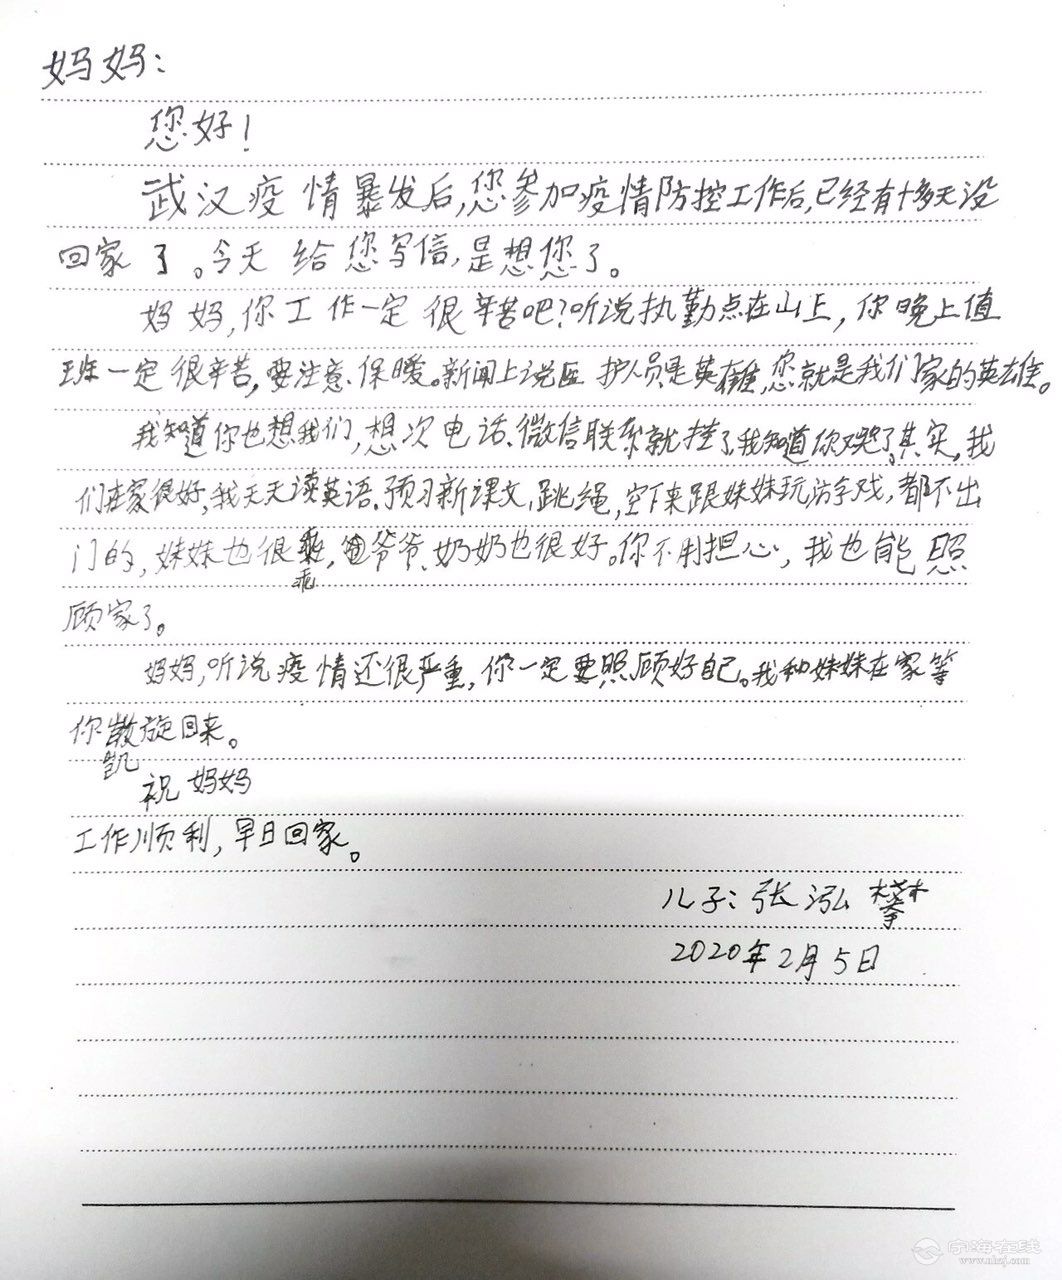 妈妈：
您好！
武汉疫情暴发后，您参加疫情防控工作后，已经有十多天没
回家了。今天给您写信，是想您了。
妈妈，你工作一定很辛苦吧？听说执勤点在山上，你晚上值
班一定很辛苦，要注意保暖。新闻上说医护人员是英雄，您就是我们家的英雄。
我知道你也想我们，想次电话、微信联系就挂了，我知道你哭了。其实，我
们在家很好，我天天读英语、预习新课文，跳绳，空下来跟妹妹玩游戏，都不出
门的，妹妹也很乖，爷爷、奶奶也很好。你不用担心，我也能照
顾家了。
妈妈，听说疫情还很严重，你一定要照顾好自己。我和妹妹在家等
你凯旋回来。
祝妈妈
工作顺利，早日回家。
儿子：张泓攀
2020年2月5日
宁海在线
www.nhzj.com